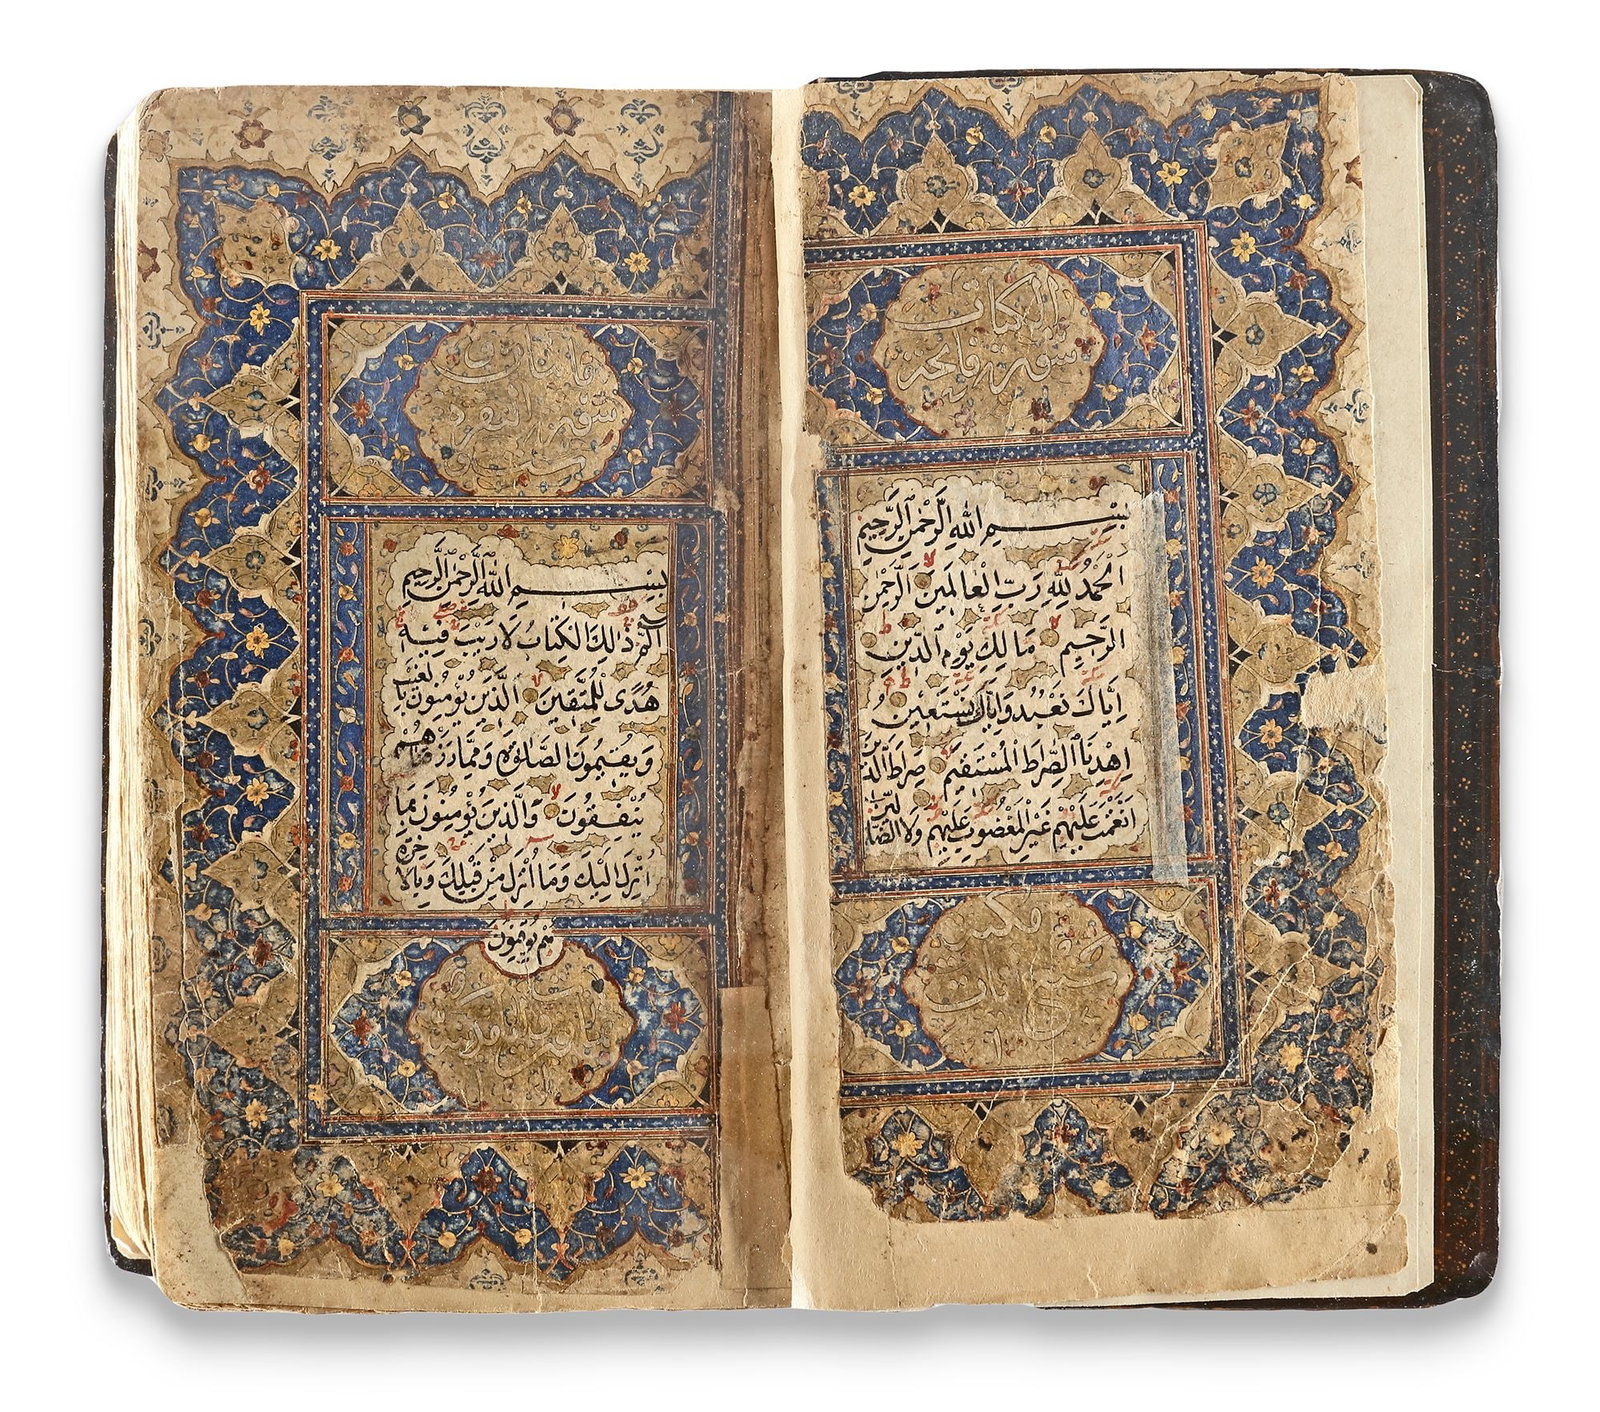 سورة فاتحة
الكتاب
بِسْمِ اللهِ الرَّحْمٰنِ الرَّحِيمِ
اَلْحَمْدُ لِلّٰهِ رَبِّ الْعَالَمِينَ الرَّحْمٰنِ
الرَّحِيمِ مَالِكِ يَوْمِ الدِّينِ
اِيَّاكَ نَعْبُدُ وَاِيَّاكَ نَسْتَعِينُ
اِهْدِنَا الصِّرَاطَ الْمُسْتَقِيمَ صِرَاطَ الَّذِينَ
اَنْعَمْتَ عَلَيْهِمْ غَيْرِ الْمَغْضُوبِ عَلَيْهِمْ وَلَا الضَّالِّينَ
سورة البقرة
بِسْمِ اللهِ الرَّحْمٰنِ الرَّحِيمِ
الٓمٓ ذٰلِكَ الْكِتَابُ لَا رَيْبَ فِيهِ
هُدًى لِلْمُتَّقِينَ الَّذِينَ يُؤْمِنُونَ بِالْغَيْبِ
وَيُقِيمُونَ الصَّلٰوةَ وَمِمَّا رَزَقْنَاهُمْ
يُنْفِقُونَ وَالَّذِينَ يُؤْمِنُونَ بِمَا
اُنْزِلَ اِلَيْكَ وَمَا اُنْزِلَ مِنْ قَبْلِكَ وَبِالْاٰخِرَةِ
هُمْ يُوقِنُونَ